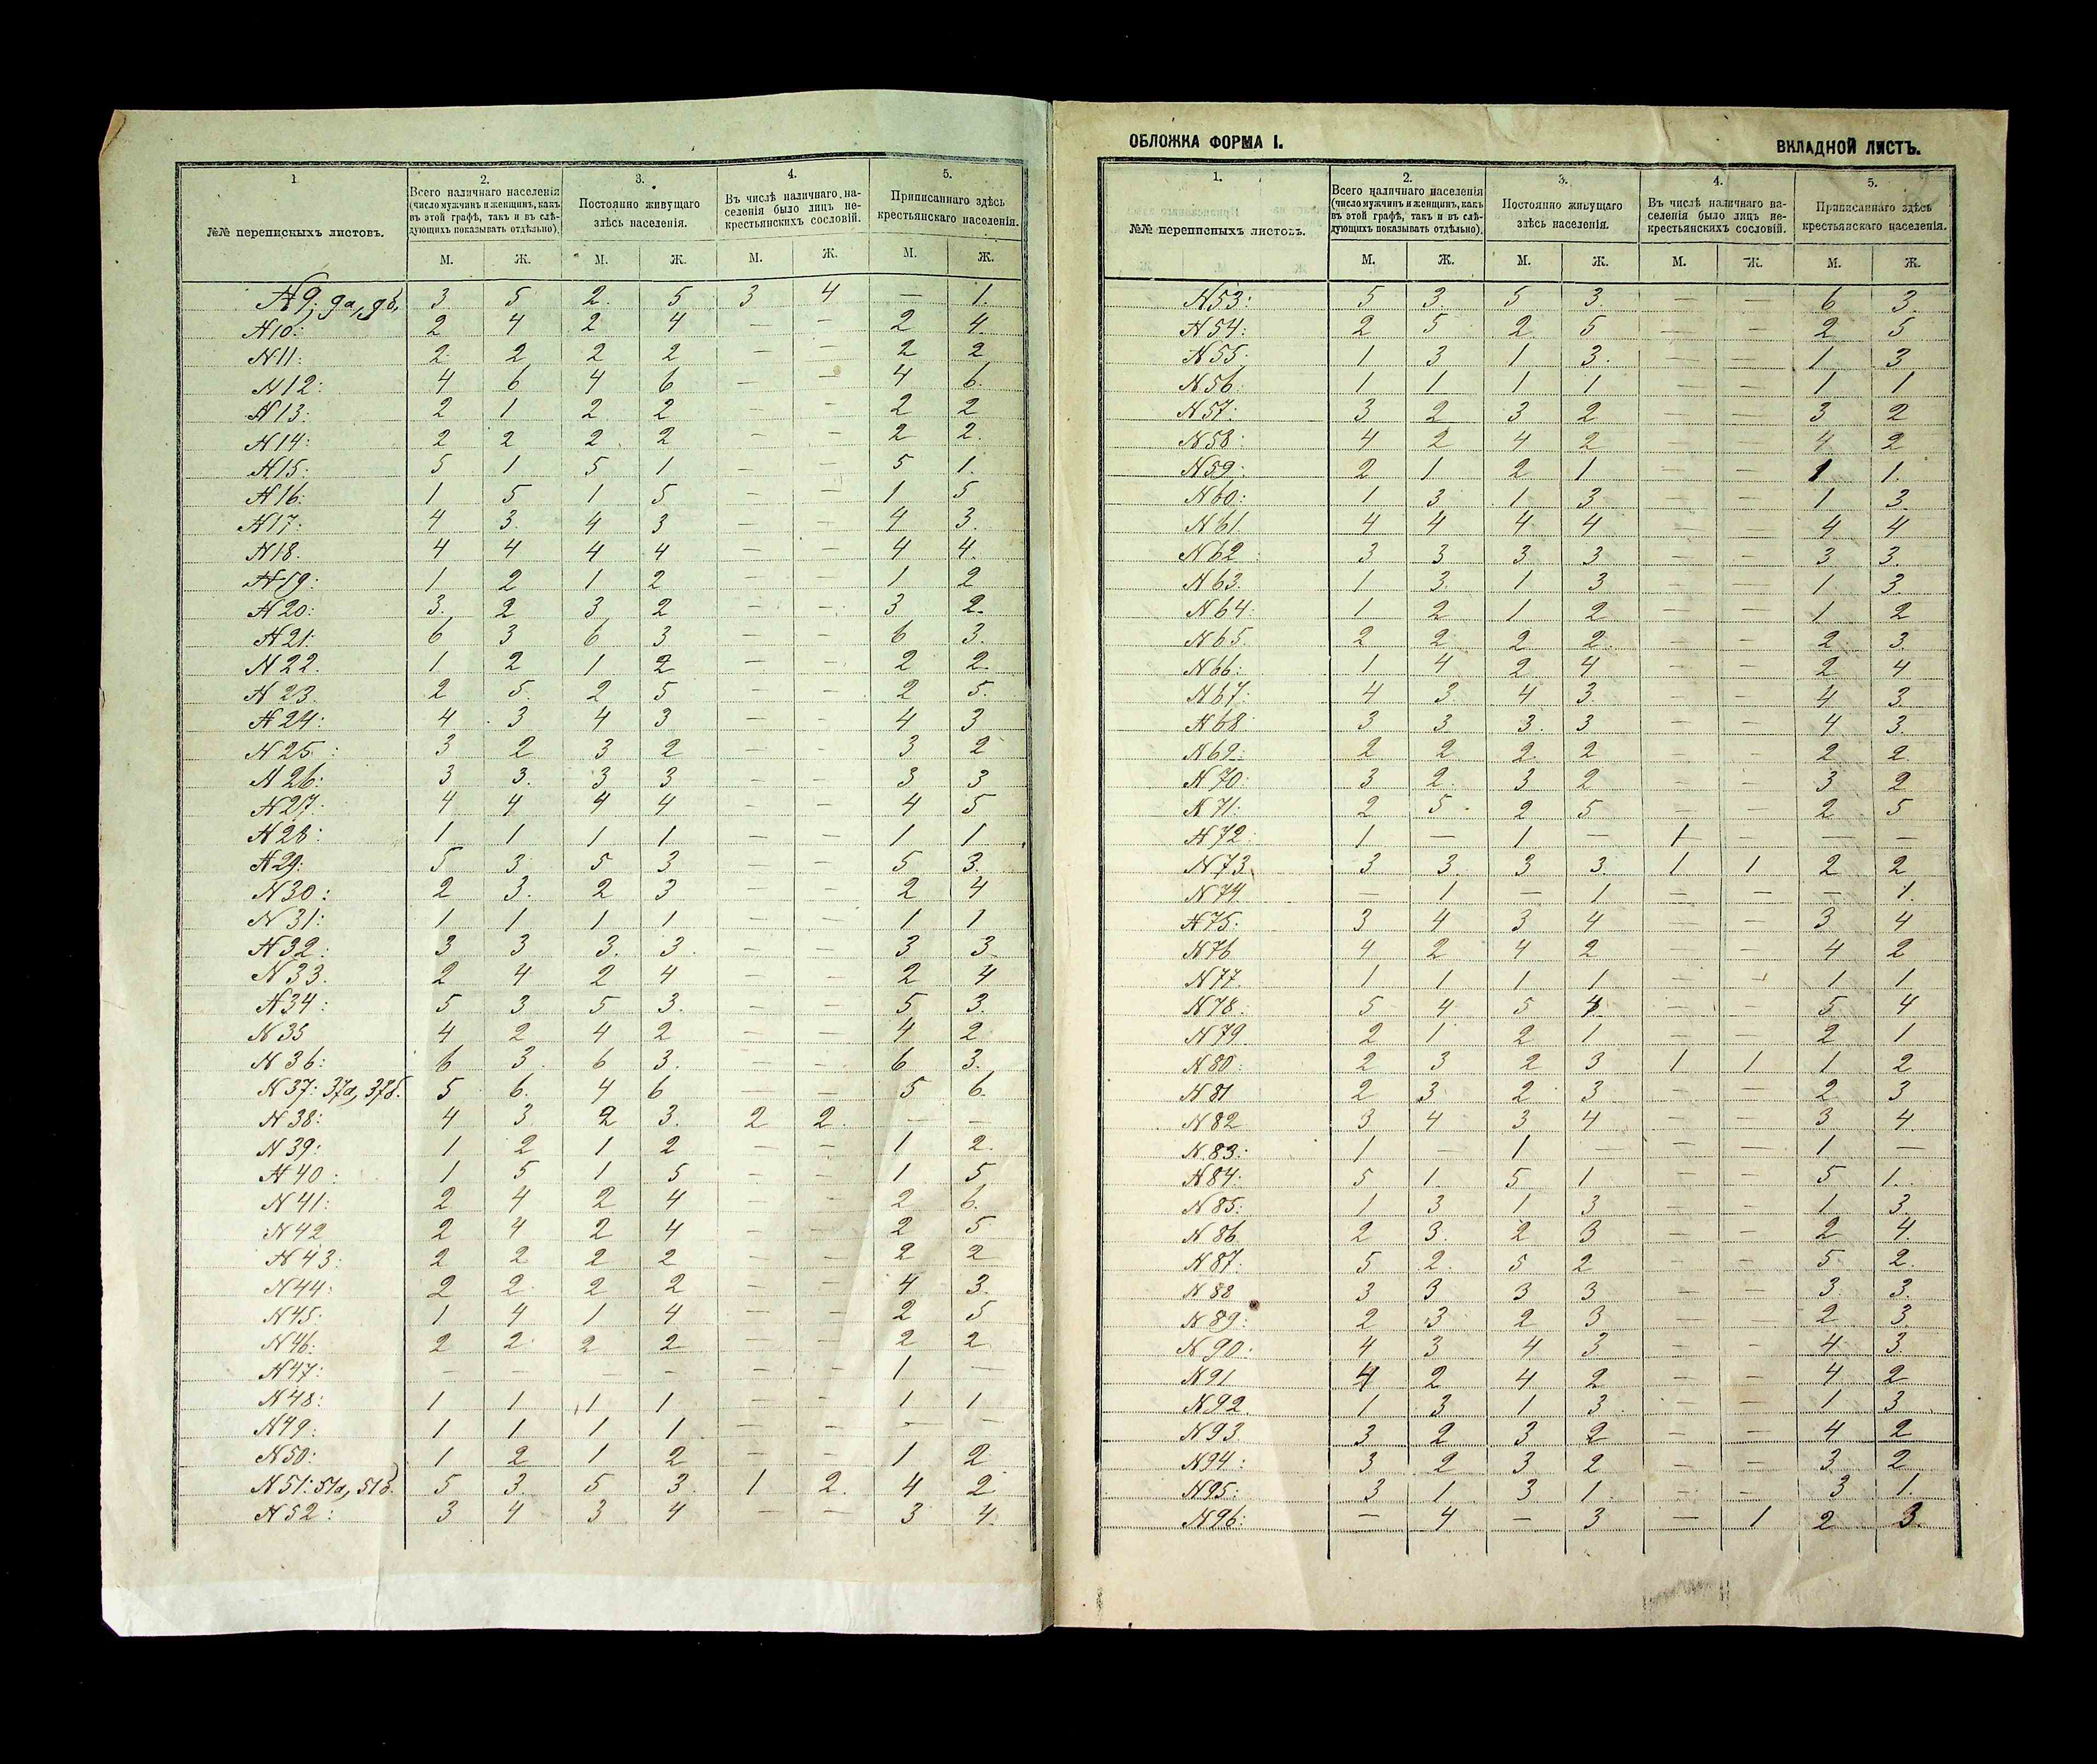 1
2.
3.
4.
5.
№№ переписныхъ листовъ.
Всего наличнаго населенія
(число мужчинъ и женщинъ, какъ
въ этой графѣ, такъ и въ слѣ-
дующихъ показывать отдѣльно).
Постоянно живущаго
здѣсь населенія.
Въ числѣ наличнаго на-
селенія было лицъ не-
крестьянскихъ сословій.
Приписаннаго здѣсь
крестьянскаго населенія.
М. Ж. М. Ж. М. Ж. М. Ж.
N9; 9а, 9б, 3 5 2. 5 3 4 — 1.
N10: 2 4 2 4 — — 2 4.
N11: 2 2 2 2 — — 2 2
N12: 4 6 4 6 — — 4 6.
N13: 2 1 2 2 — — 2 2
N14: 2 2 2 2 — — 2 2.
N15: 5 1 5 1 — — 5 1.
N16: 1 5 1 5 — — 1 5
N17: 4 3. 4 3 — — 4 3.
N18. 4 4 4 4 — — 4 4.
N19: 1 2 1 2 — — 1 2
N20: 3. 2 3 2 — — 3 2.
N21: 6 3 6 3 — — 6 3.
N22. 1 2 1 2 — — 2 2.
N23. 2 5. 2 5 — — 2 5.
N24: 4 3 4 3 — — 4 3
N25: 3 2 3 2 — — 3 2
N26: 3 3. 3 3 — — 3 3
N27: 4 4 4 4 — — 4 5
N28: 1 1 1 1 — — 1 1
N29: 5 3 5 3 — — 5 3.
N30: 2 3. 2 3 — — 2 4
N31: 1 1 1 1 — — 1 1
N32: 3 3 3. 3. — — 3 3
N33. 2 4 2 4 — — 2 4
N34: 5 3 5 3. — — 5 3.
N35 4 2 4 2 — — 4 2
N36: 6 3. 6 3. — — 6 3.
N37: 37а, 37б. 5 6. 4 6 — — 5 6.
N38: 4 3. 2 3. 2 2. — —
N39: 1 2 1 2 — — 1 2.
N40: 1 5 1 5 — — 1 5
N41: 2 4 2 4 — — 2 6.
N42 2 4 2 4 — — 2 5
N43: 2 2 2 2 — — 2 2
N44: 2 2 2 2 — — 4 3.
N45: 1 4 1 4 — — 2 5
N46: 2 2 2 2 — — 2 2
N47: — — — — — — 1 —
N48: 1 1 1 1 — — 1 1
N49: 1 1 1 1 — — — —
N50: 1 2 1 2 — — 1 2
N51: 51а, 51б. 5 3. 5 3. 1 2. 4 2
N52: 3 4 3 4 — — 3 4.
ОБЛОЖКА ФОРМА I.
ВКЛАДНОЙ ЛИСТЪ.
1.
2.
3.
4.
5.
№№ переписныхъ листовъ.
Всего наличнаго населенія
(число мужчинъ и женщинъ, какъ
въ этой графѣ, такъ и въ слѣ-
дующихъ показывать отдѣльно).
Постоянно живущаго
здѣсь населенія.
Въ числѣ наличнаго на-
селенія было лицъ не-
крестьянскихъ сословій.
Приписаннаго здѣсь
крестьянскаго населенія.
М. Ж. М. Ж. М. Ж. М. Ж.
N53: 5 3. 5 3. — — 6 3.
N54: 2 5 2 5 — — 2 5
N55. 1 3 1 3. — — 1 3
N56: 1 1 1 1 — — 1 1
N57: 3 2 3 2 — — 3 2
N58: 4 2 4 2 — — 4 2
N59: 2 1 2 1 — — 1 1.
N60: 1 3 1 3 — — 1 3.
N61 4 4 4 4 — — 4 4
N62: 3 3 3 3 — — 3 3.
N63. 1 3. 1 3 — — 1 3.
N64: 1 2 1 2 — — 1 2
N65. 2 2 2 2. — — 2 3.
N66: 1 4 2 4 — — 2 4
N67: 4 3 4 3. — — 4 3.
N68: 3 3. 3. 3 — — 4 3.
N69: 2 2 2 2 — — 2 2.
N70: 3 2 3 2 — — 3 2
N71: 2 5. 2 5 — — 2 5
N72: 1 — 1 — 1 — — —
N73. 3 3. 3 3. 1 1 2 2
N74. — 1 — 1 — — — 1.
N75: 3 4 3 4 — — 3 4
N76 4 2 4 2 — — 4 2
N77. 1 1 1 1 — — 1 1
N78: 5 4 5 4 — — 5 4
N79 2 1 2 1 — — 2 1
N80: 2 3 2 3 1 1 1 2
N81 2 3 2 3 — — 2 3
N82 3 4 3 4 — — 3 4.
N83: 1 — 1 — — — 1 —
N84: 5 1. 5 1 — — 5 1.
N85: 1 3 1 3 — — 1 3.
N86 2 3. 2 3 — — 2 4.
N87: 5 2. 5 2 — — 5 2.
N88 3 3 3 3 — — 3 3.
N89: 2 3 2 3 — — 2 3.
N90: 4 3 4 3 — — 4 3.
N91 4 2 4 2 — — 4 2
N92. 1 3 1 3 — — 1 3
N93 3 2 3 2 — — 4 2
N94: 3 2 3 2 — — 3 2
N95: 3 1 3 1 — — 3 1.
N96: — 4 — 3 — 1 2 3.